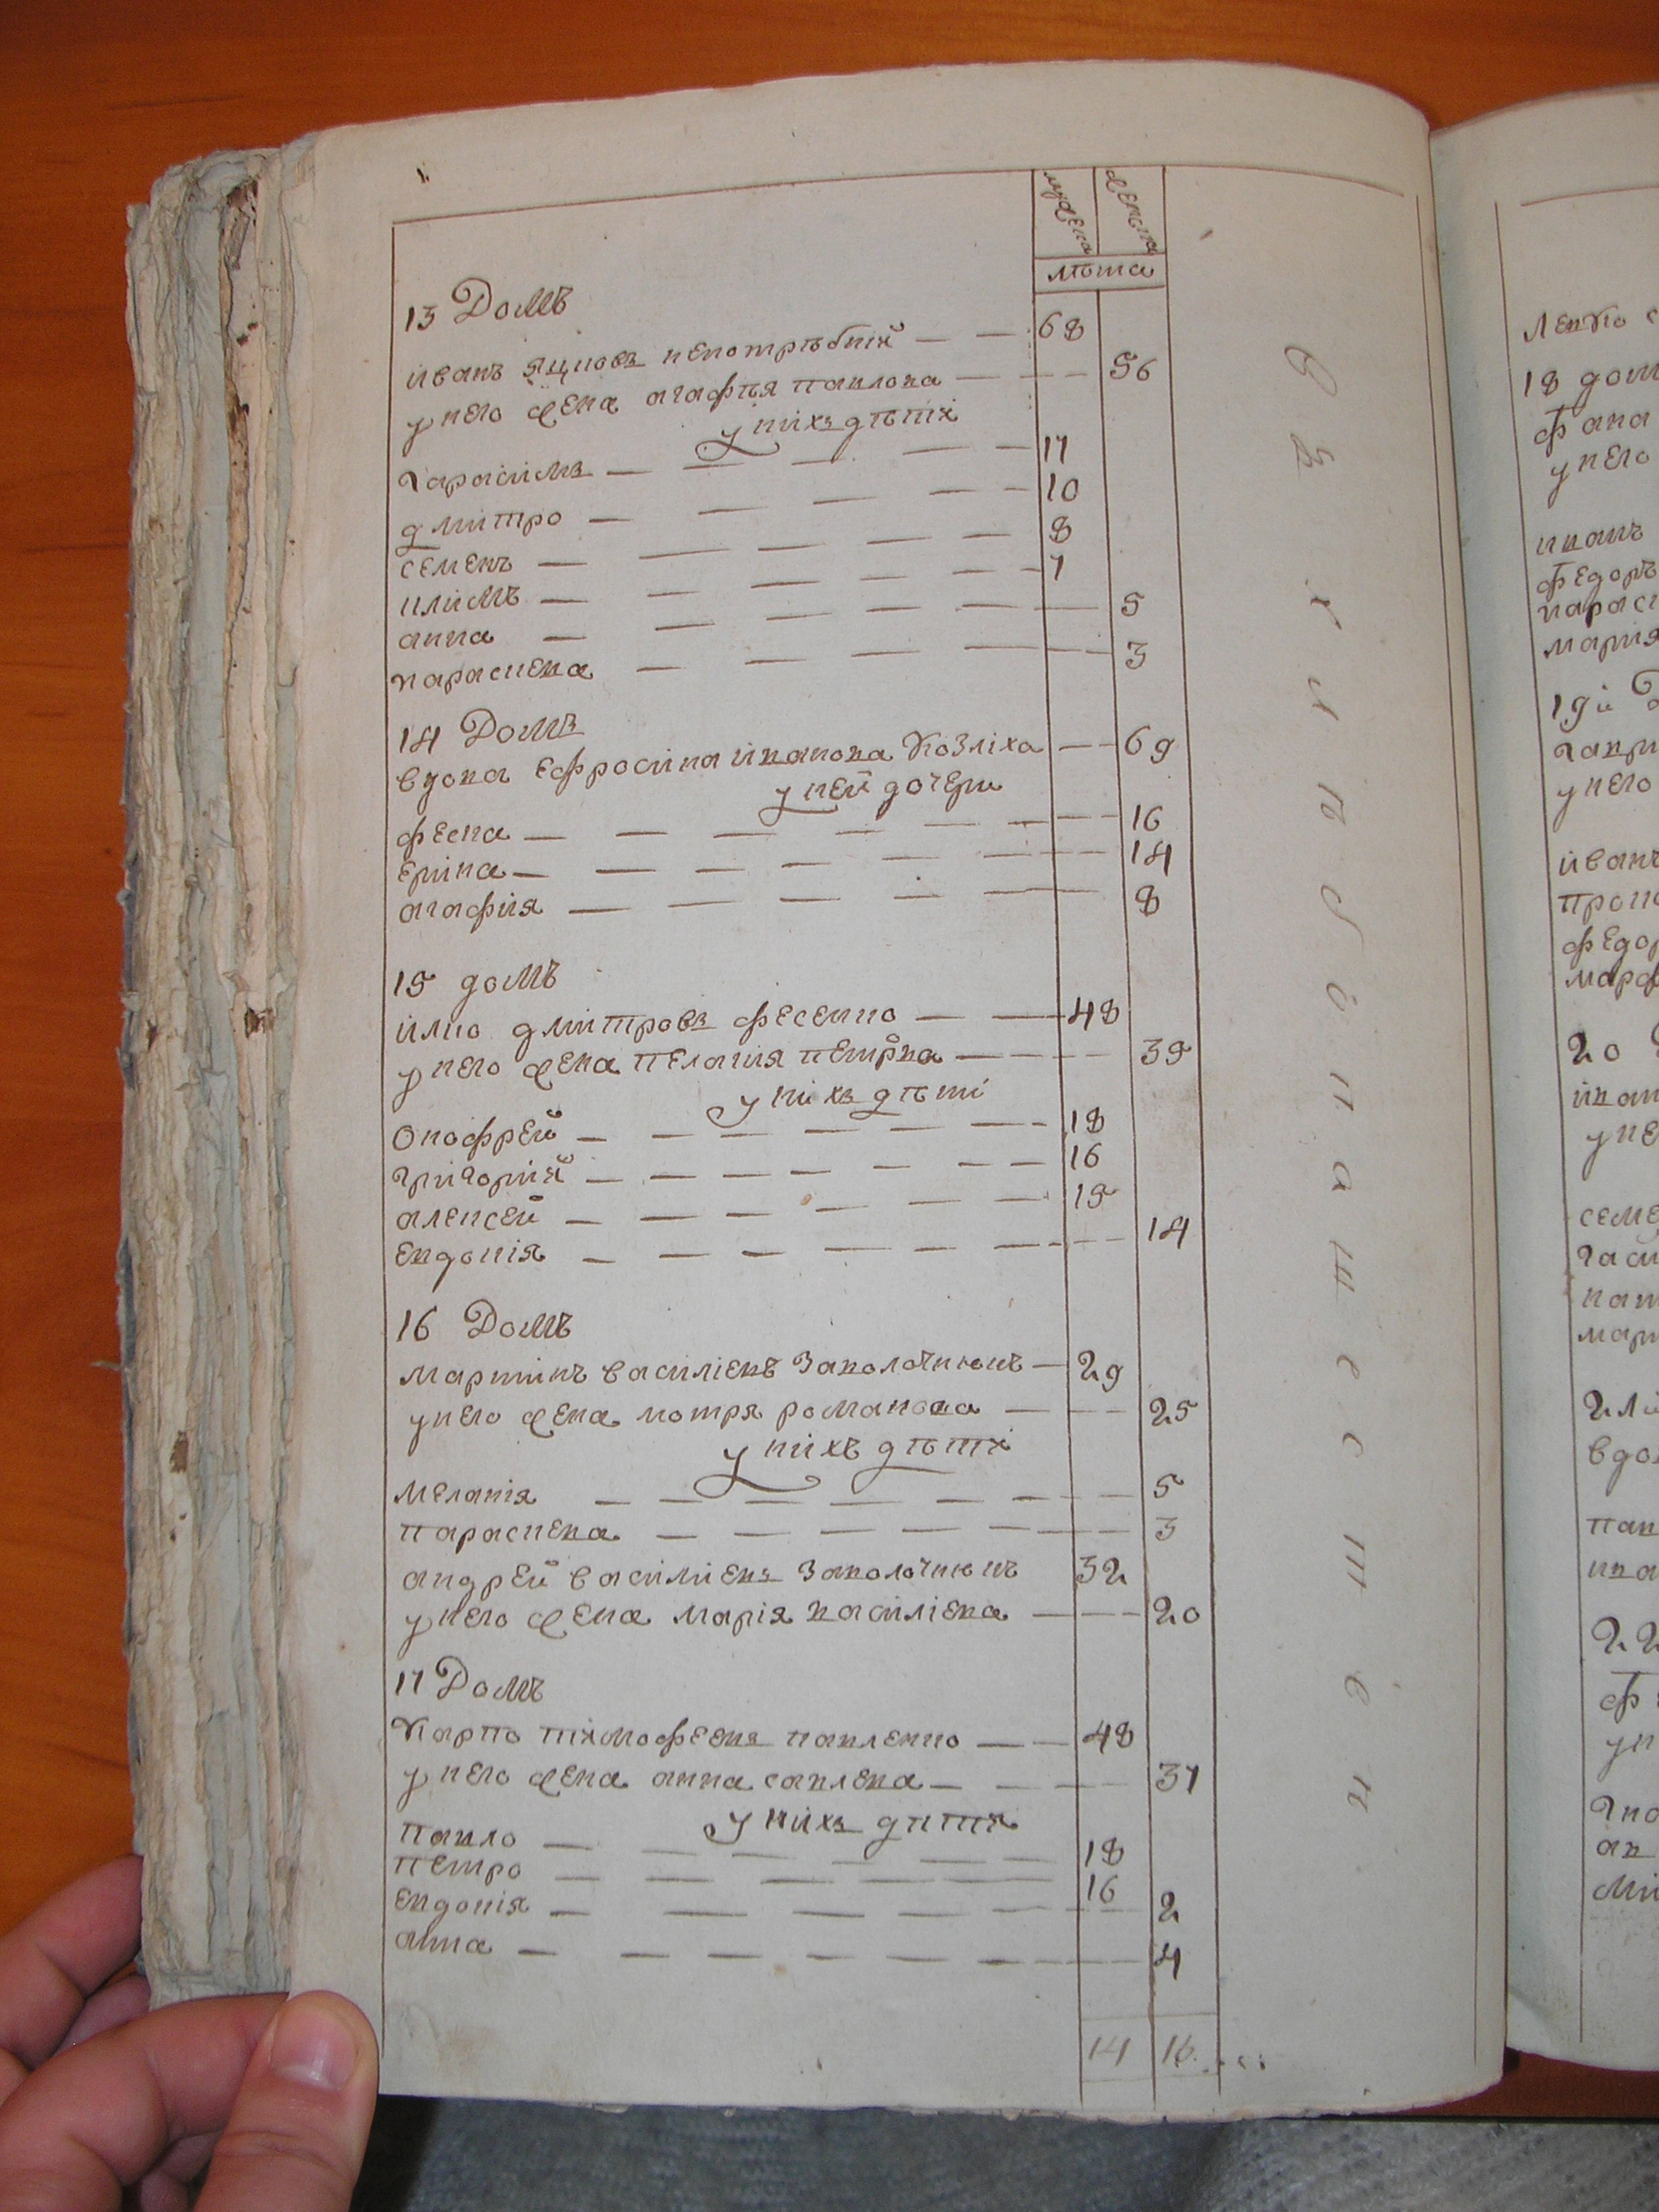 мужеска женска
лѣта
13 Домъ
иванъ яцковъ непотрѣбній 68
у него жена агафѣя павлова 56
у нихъ дѣти
гарасимъ 17
дмитро 10
семенъ 8
климъ 7
анна 5
параскева 3
14 Домъ
вдова Ефросина иванова Козліха 69
у ней дочери
феска 16
Ерина 14
агафия 8
15 домъ
илко дмитровъ фесенко 48
у него жена пелагия петрва 39
у нихъ дѣти
Онофрей 18
григорий 16
алексей 15
Евдокія 14
16 Домъ
мартинъ василіевъ Заволочнюкъ 29
у него жена мотря романова 25
у нихъ дѣти
меланія 5
параскева 3
андрей василиевъ Заволочнюкъ 32
у него жена марія василіева 20
17 Домъ
Карпо тимофеевъ павленко 48
у него жена анна савлева 37
у нихъ дити
павло 18
петро 16
Евдокія 2
анна 4
14 16
18 дом
у него
иванъ
федоръ
марія
19й
у него
иванъ
20
у не
22